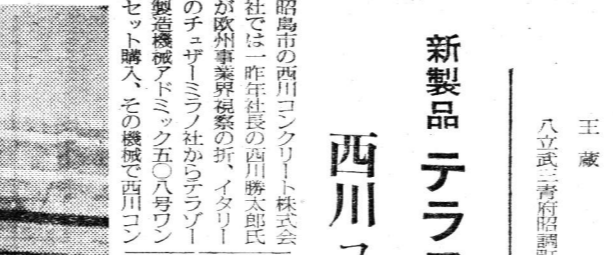 王蔵
八立武三青府昭調町
新製品 テラ
西川コ
昭島市の西川コンクリート株式会
社では一昨年社長の西川勝太郎氏
が欧州事業界視察の折、イタリー
のチュザーミラノ社からテラゾー
製造機械アドミック五〇八号ワン
セット購入、その機械で西川コン